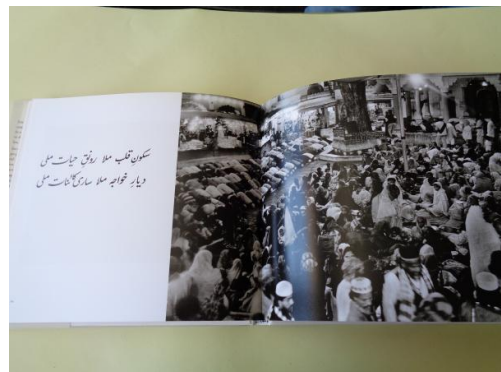 سکونِ قلب ملا رونقِ حیات ملی
دیارِ خواجہ ملا ساری کائنات ملی